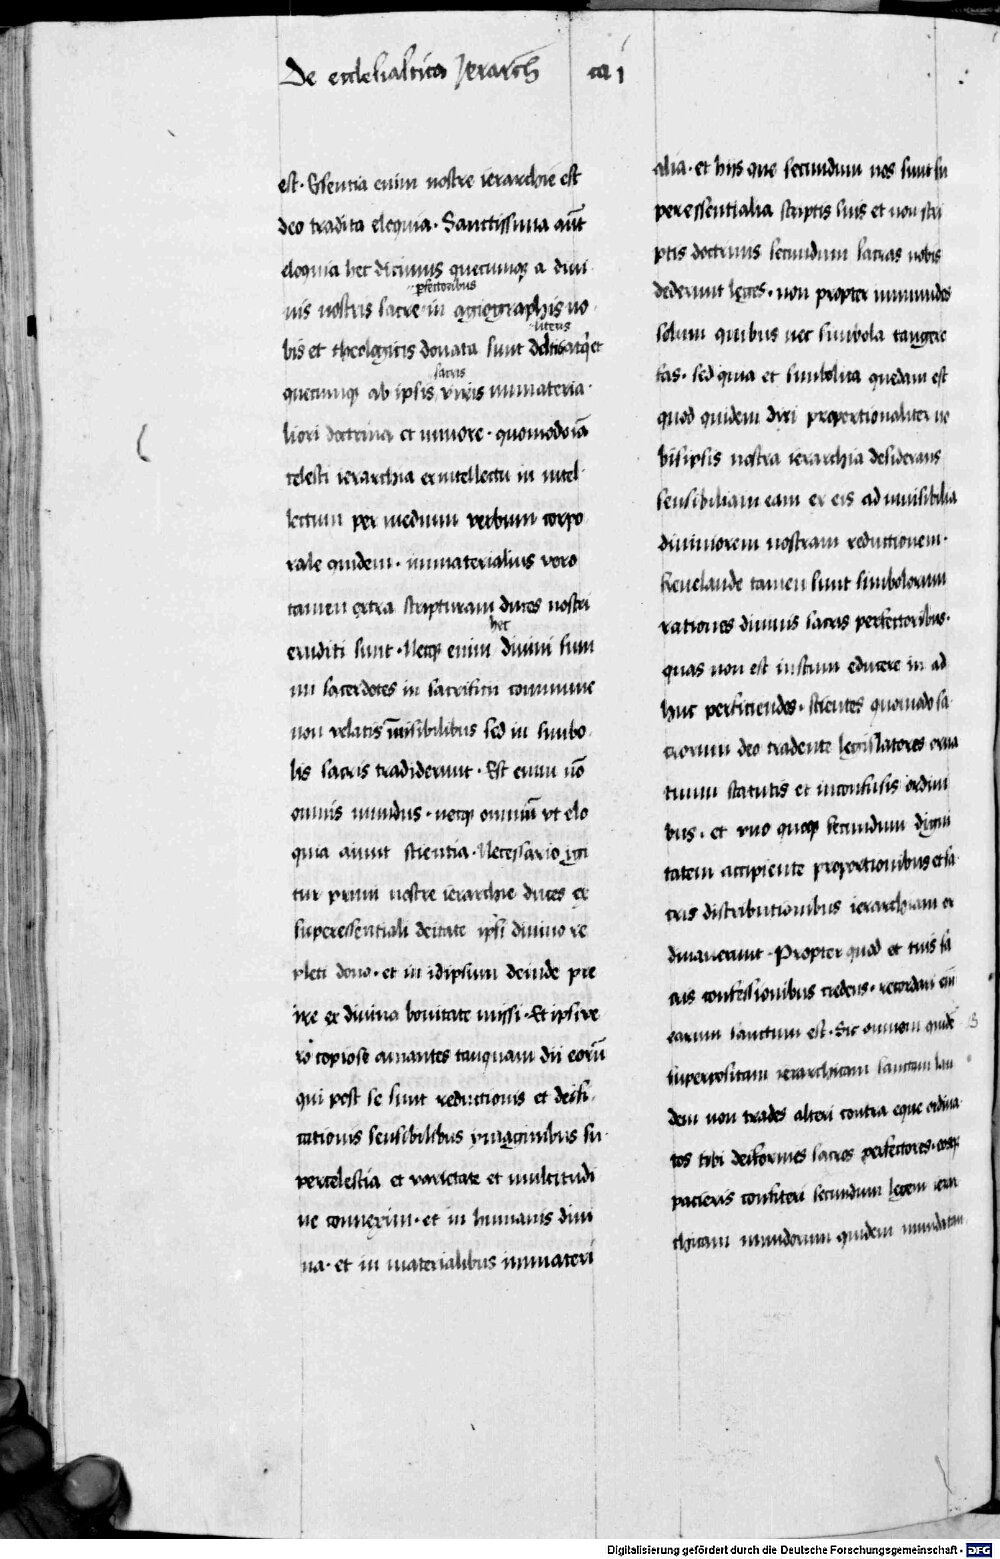 De ecclesiastica Jerarch ca i
est. Essentia enim nostre ierarchie est
deo tradita eloquia. Sanctissima aūt
eloquia hec dicimus quecumqꝫ a divi
nis nostris sacre in agiographis no
pfectoribus
bis et theologicis donata sunt deltis atqꝫ et
litteris
quecumqꝫ ab ipsis viris immateria
sacris
liori doctrina et minore. quomodo iā
celesti ierarchia ex intellectu in intel
lectum per medium verbum corpo
rale quidem. immaterialius vero
tamen extra scripturam duces nostri
eruditi sunt. Neqꝫ enim divini sum
hec
mi sacerdotes in sacrificii commune
non velatis īvisibilibus sed in simbo
lis sacris tradiderunt. Est enim nō
omnis mundus. neqꝫ omniū vt elo
quia aiunt scientia. Necessario igi
tur primi nostre ierarchie duces ex
superessentiali deitate ipsi divino re
pleti dono. et in idipsum deinde pre
ire ex divina bonitate missi. Et ipsi ve
ro copiose amantes tanquam dii eorū
qui post se sunt reductionis et deifi
cationis sensibilibus ymaginibus su
percelestia et varietate et multitudi
ne connexim. et in humanis divi
na. et in materialibus immateri
alia. et hijs que secundum nos sunt su
peressentialia scriptis suis et non scri
ptis doctrinis secundum sacras nobis
dederunt leges. non propter immundos
solum quibus nec simbola tangere
fas. sed quia et simbolica quedam est
quod quidem dixi proportionaliter no
bisipsis nostra ierarchia desiderans
sensibilium eam ex eis ad invisibilia
diviniorem nostram reductionem.
Revelande tamen sunt simbolorum
rationes divinis sacris perfectoribus.
quas non est iustum educere in ad
huc perficiendos. scientes quomodo sa
crorum deo tradente legislatores orna
tuum statutis et inconfusis ordini
bus. et vno quoqꝫ secundum digni
tatem accipiente proportionibus et sa
cris distributionibus ierarchiam or
dinaverunt. Propter quod et tuis sa
cris confessionibus credens. recordari eni
earum sanctum est. Sic omnem quidē
superpositam ierarchicam sanctam lau
dem non trades alteri contra eque ordina
tos tibi deiformes sacros perfectores. eosqꝫ
pacieris confiteri secundum legem ierar
chicam mundorum quidem mundatam